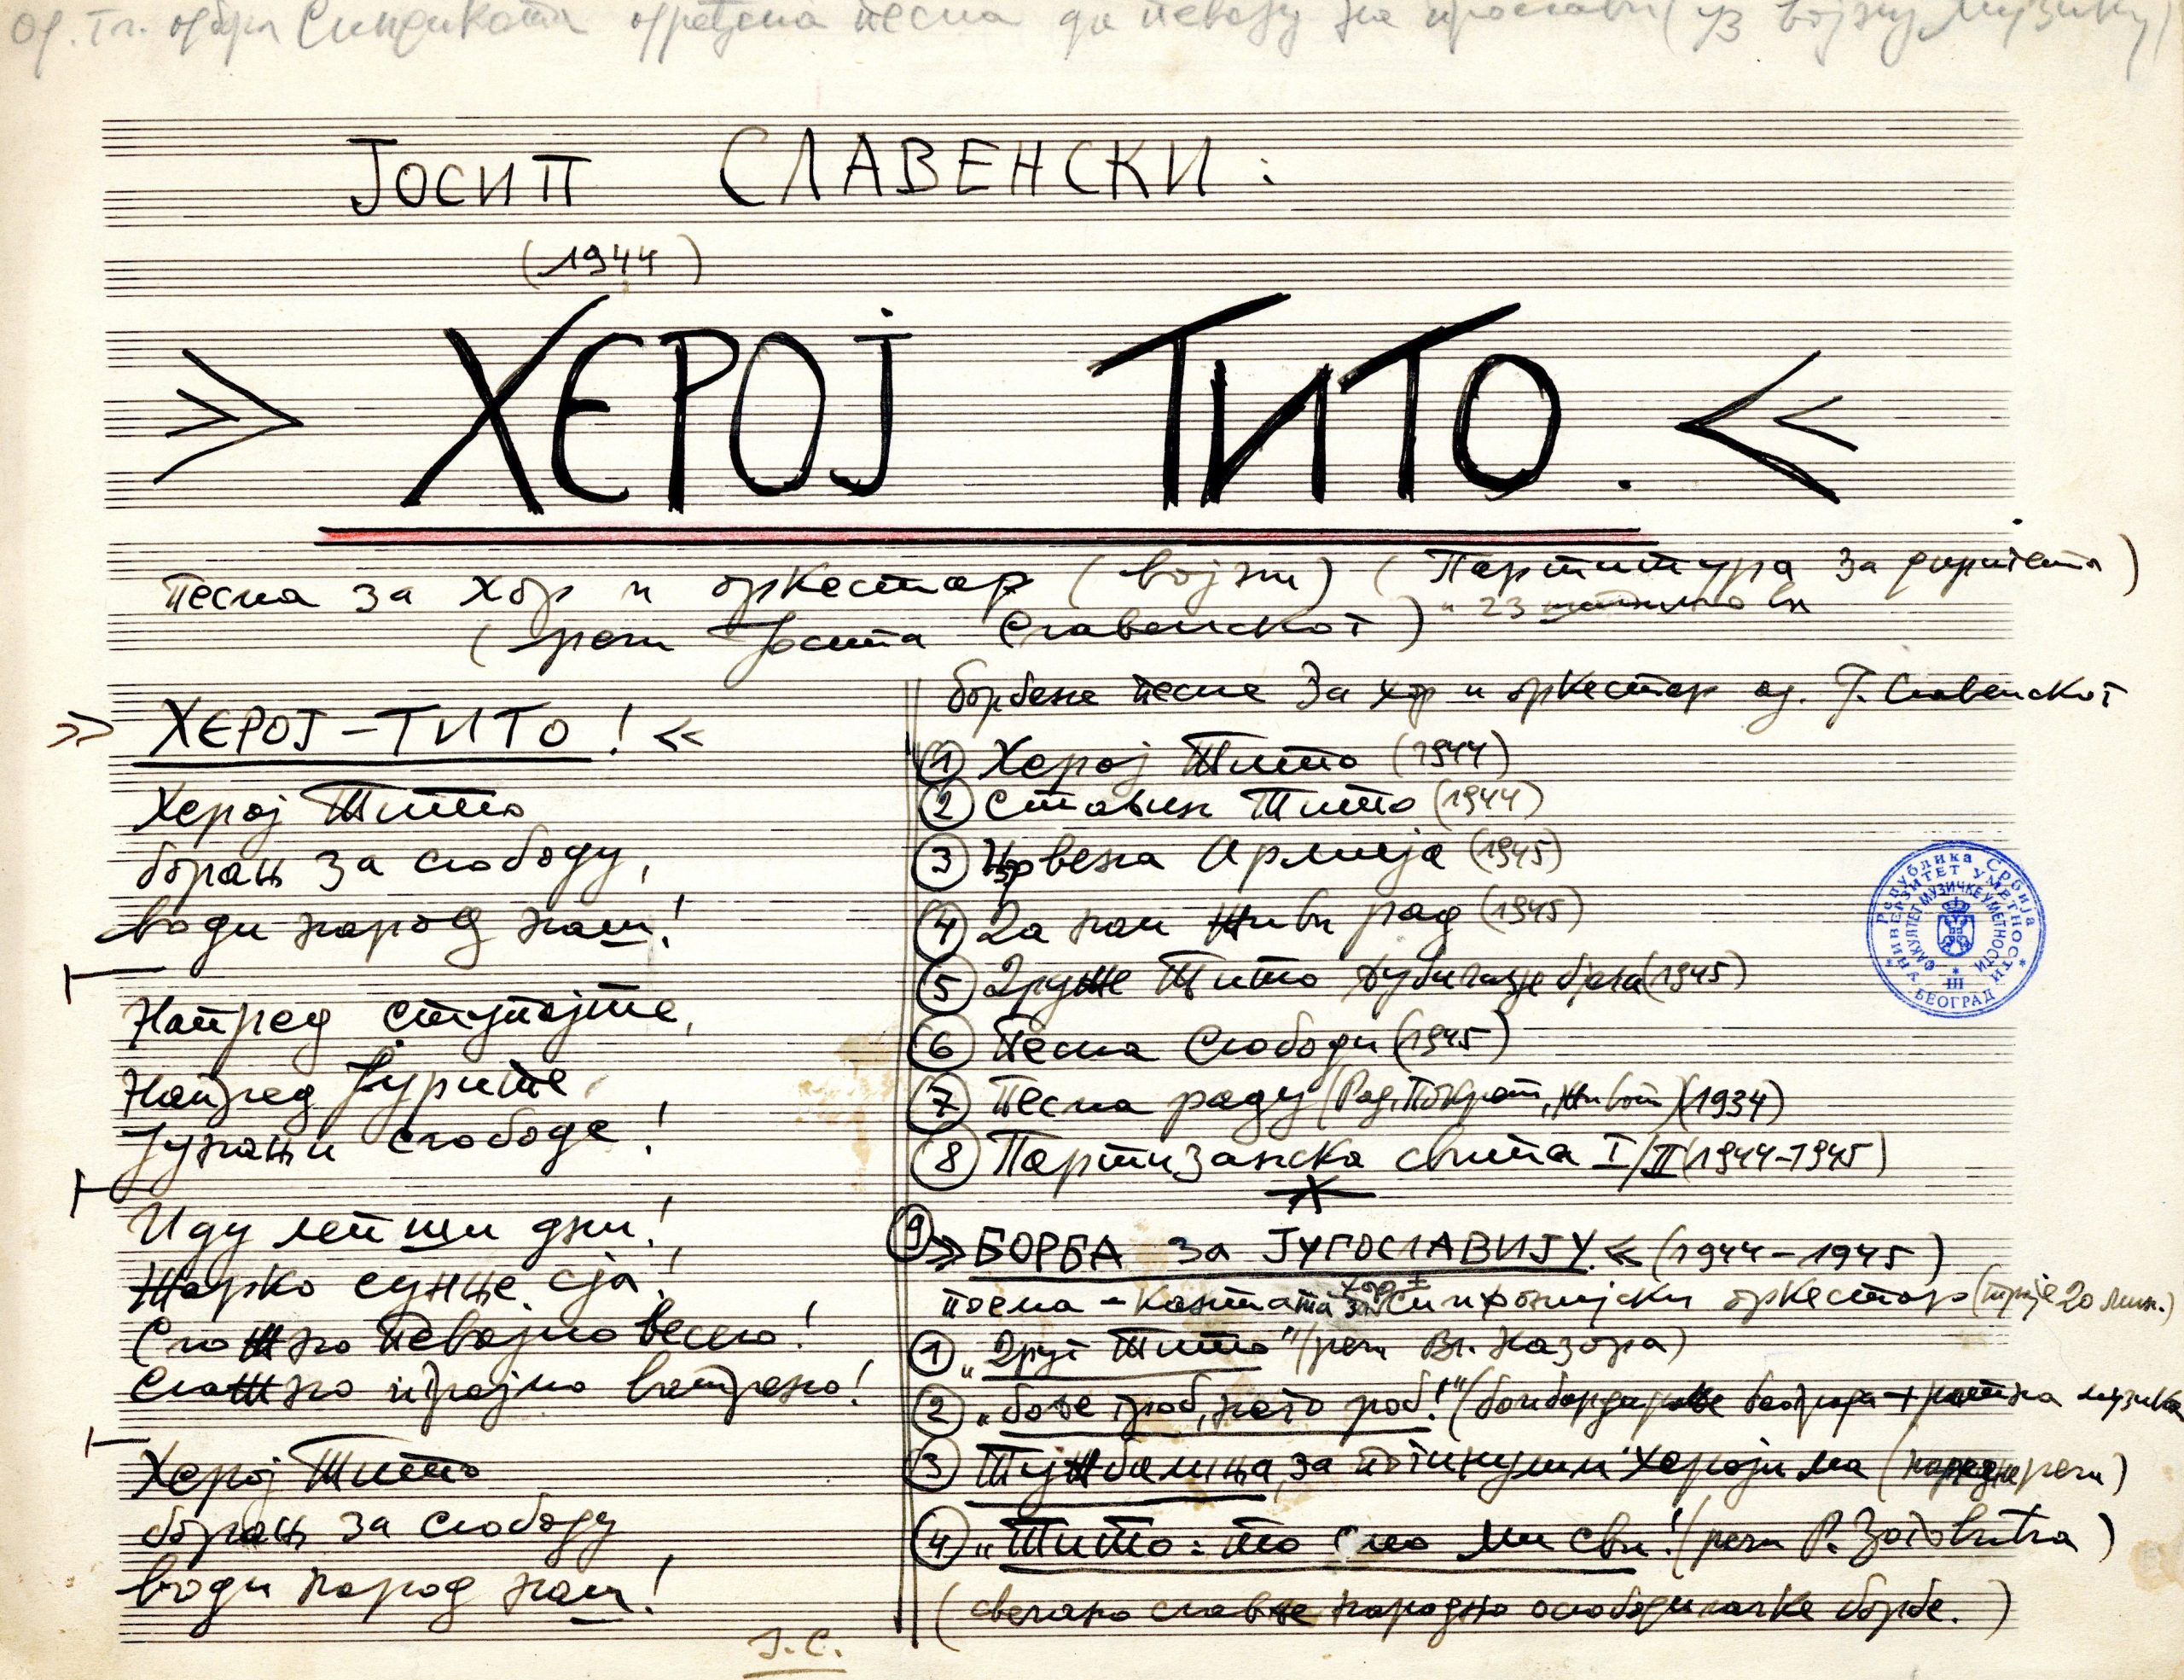 од. Гл. одбра Синдиката одређена песма да певају на прослави (уз војну музику)
ЈОСИП СЛАВЕНСКИ:
(1944)
» ХЕРОЈ ТИТО. «
Песма за хор и оркестар (војни) (Партитура за диригента)
(речи Јосипа Славенског) " 23
» ХЕРОЈ-ТИТО! «
Херој Тито
борац за слободу,
води народ наш!
Напред ступајте,
Напред јурите,
Јунаци слободе!
Иду лепши дни!
Жарко сунце сја!
Сложно певајмо весело!
Сложно играјмо ватрено!
Херој Тито
борац за слободу
води народ наш!
Ј.С.
борбене песме за хор и оркестар од. Ј. Славенског
① Херој Тито (1944)
② Стаљин Тито (1944)
③ Црвена Армија (1945)
④ Да нам живи рад (1945)
⑤ Друже Тито љубичице бела (1945)
⑥ Песма Слободи (1945)
⑦ Песма раду (Рад, Покрет, Живот) (1934)
⑧ Партизанска свита I/II (1944-1945)
⑨ » БОРБА за ЈУГОСЛАВИЈУ. « (1944-1945)
поема - кантата за хор + Симфонијски оркестар (траје 20 мин.)
① „Друг Тито" (речи Вл. Назора)
② „боље гроб, него роб!" (бомбардовање београда + ратна музика
③ Тужбалица за погинулим Херојима (народне речи)
④ „Тито: то смо ми сви! (речи Р. Зоговића)
(свечано славље народно ослободилачке борбе.)
Република Србија
УНИВЕРЗИТЕТ УМЕТНОСТИ
ФАКУЛТЕТ МУЗИЧКЕ УМЕТНОСТИ
III
БЕОГРАД